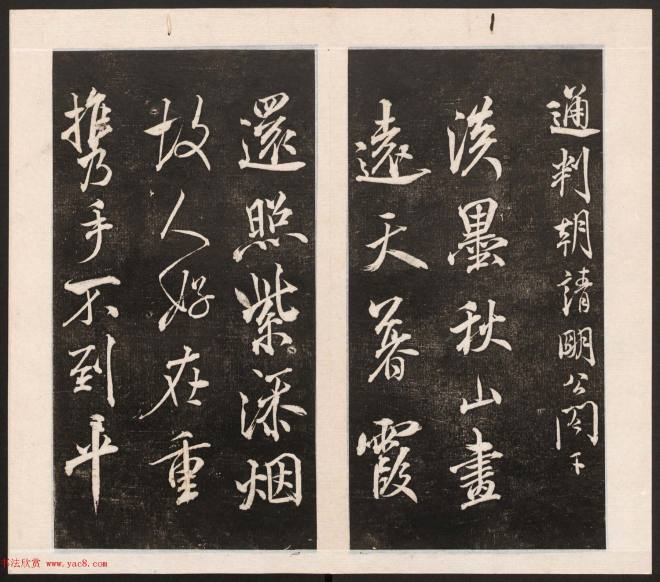 通判朝請明公閣下
淡墨秋山畫
遠天暮霞
還照紫添烟
故人好在重
携手不到平
书法欣赏 www.yac8.com